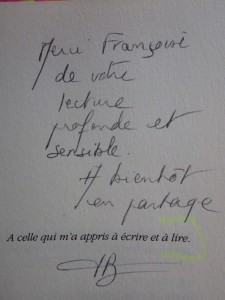 Merci Françoise
de votre
lecture
profonde et
sensible.
A bientôt
en partage
A celle qui m'a appris à écrire et à lire.